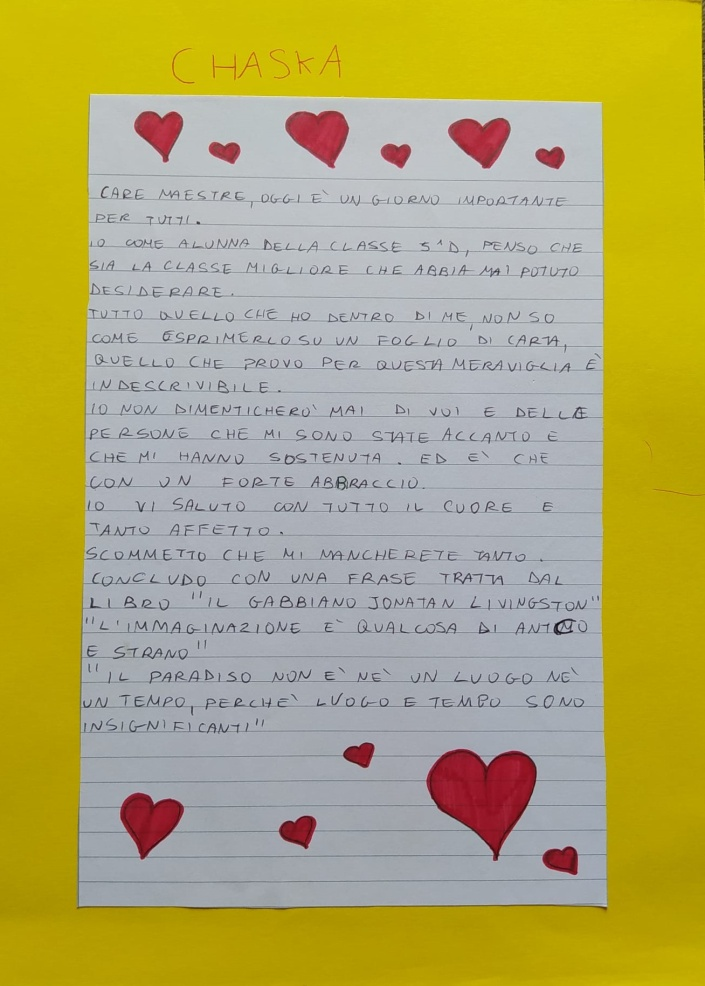 CHASKA
CARE MAESTRE, OGGI È UN GIORNO IMPORTANTE
PER TUTTI.
IO COME ALUNNA DELLA CLASSE 5^D, PENSO CHE
SIA LA CLASSE MIGLIORE CHE ABBIA MAI POTUTO
DESIDERARE.
TUTTO QUELLO CHE HO DENTRO DI ME, NON SO
COME ESPRIMERLO SU UN FOGLIO DI CARTA,
QUELLO CHE PROVO PER QUESTA MERAVIGLIA È
INDESCRIVIBILE.
IO NON DIMENTICHERÒ MAI DI VOI E DELLE
PERSONE CHE MI SONO STATE ACCANTO E
CHE MI HANNO SOSTENUTA. ED È CHE
CON UN FORTE ABBRACCIO.
IO VI SALUTO CON TUTTO IL CUORE E
TANTO AFFETTO.
SCOMMETTO CHE MI MANCHERETE TANTO.
CONCLUDO CON UNA FRASE TRATTA DAL
LIBRO "IL GABBIANO JONATAN LIVINGSTON"
"L'IMMAGINAZIONE È QUALCOSA DI ANTICO
E STRANO"
"IL PARADISO NON È NÈ UN LUOGO NÈ
UN TEMPO, PERCHÈ LUOGO E TEMPO SONO
INSIGNIFICANTI"